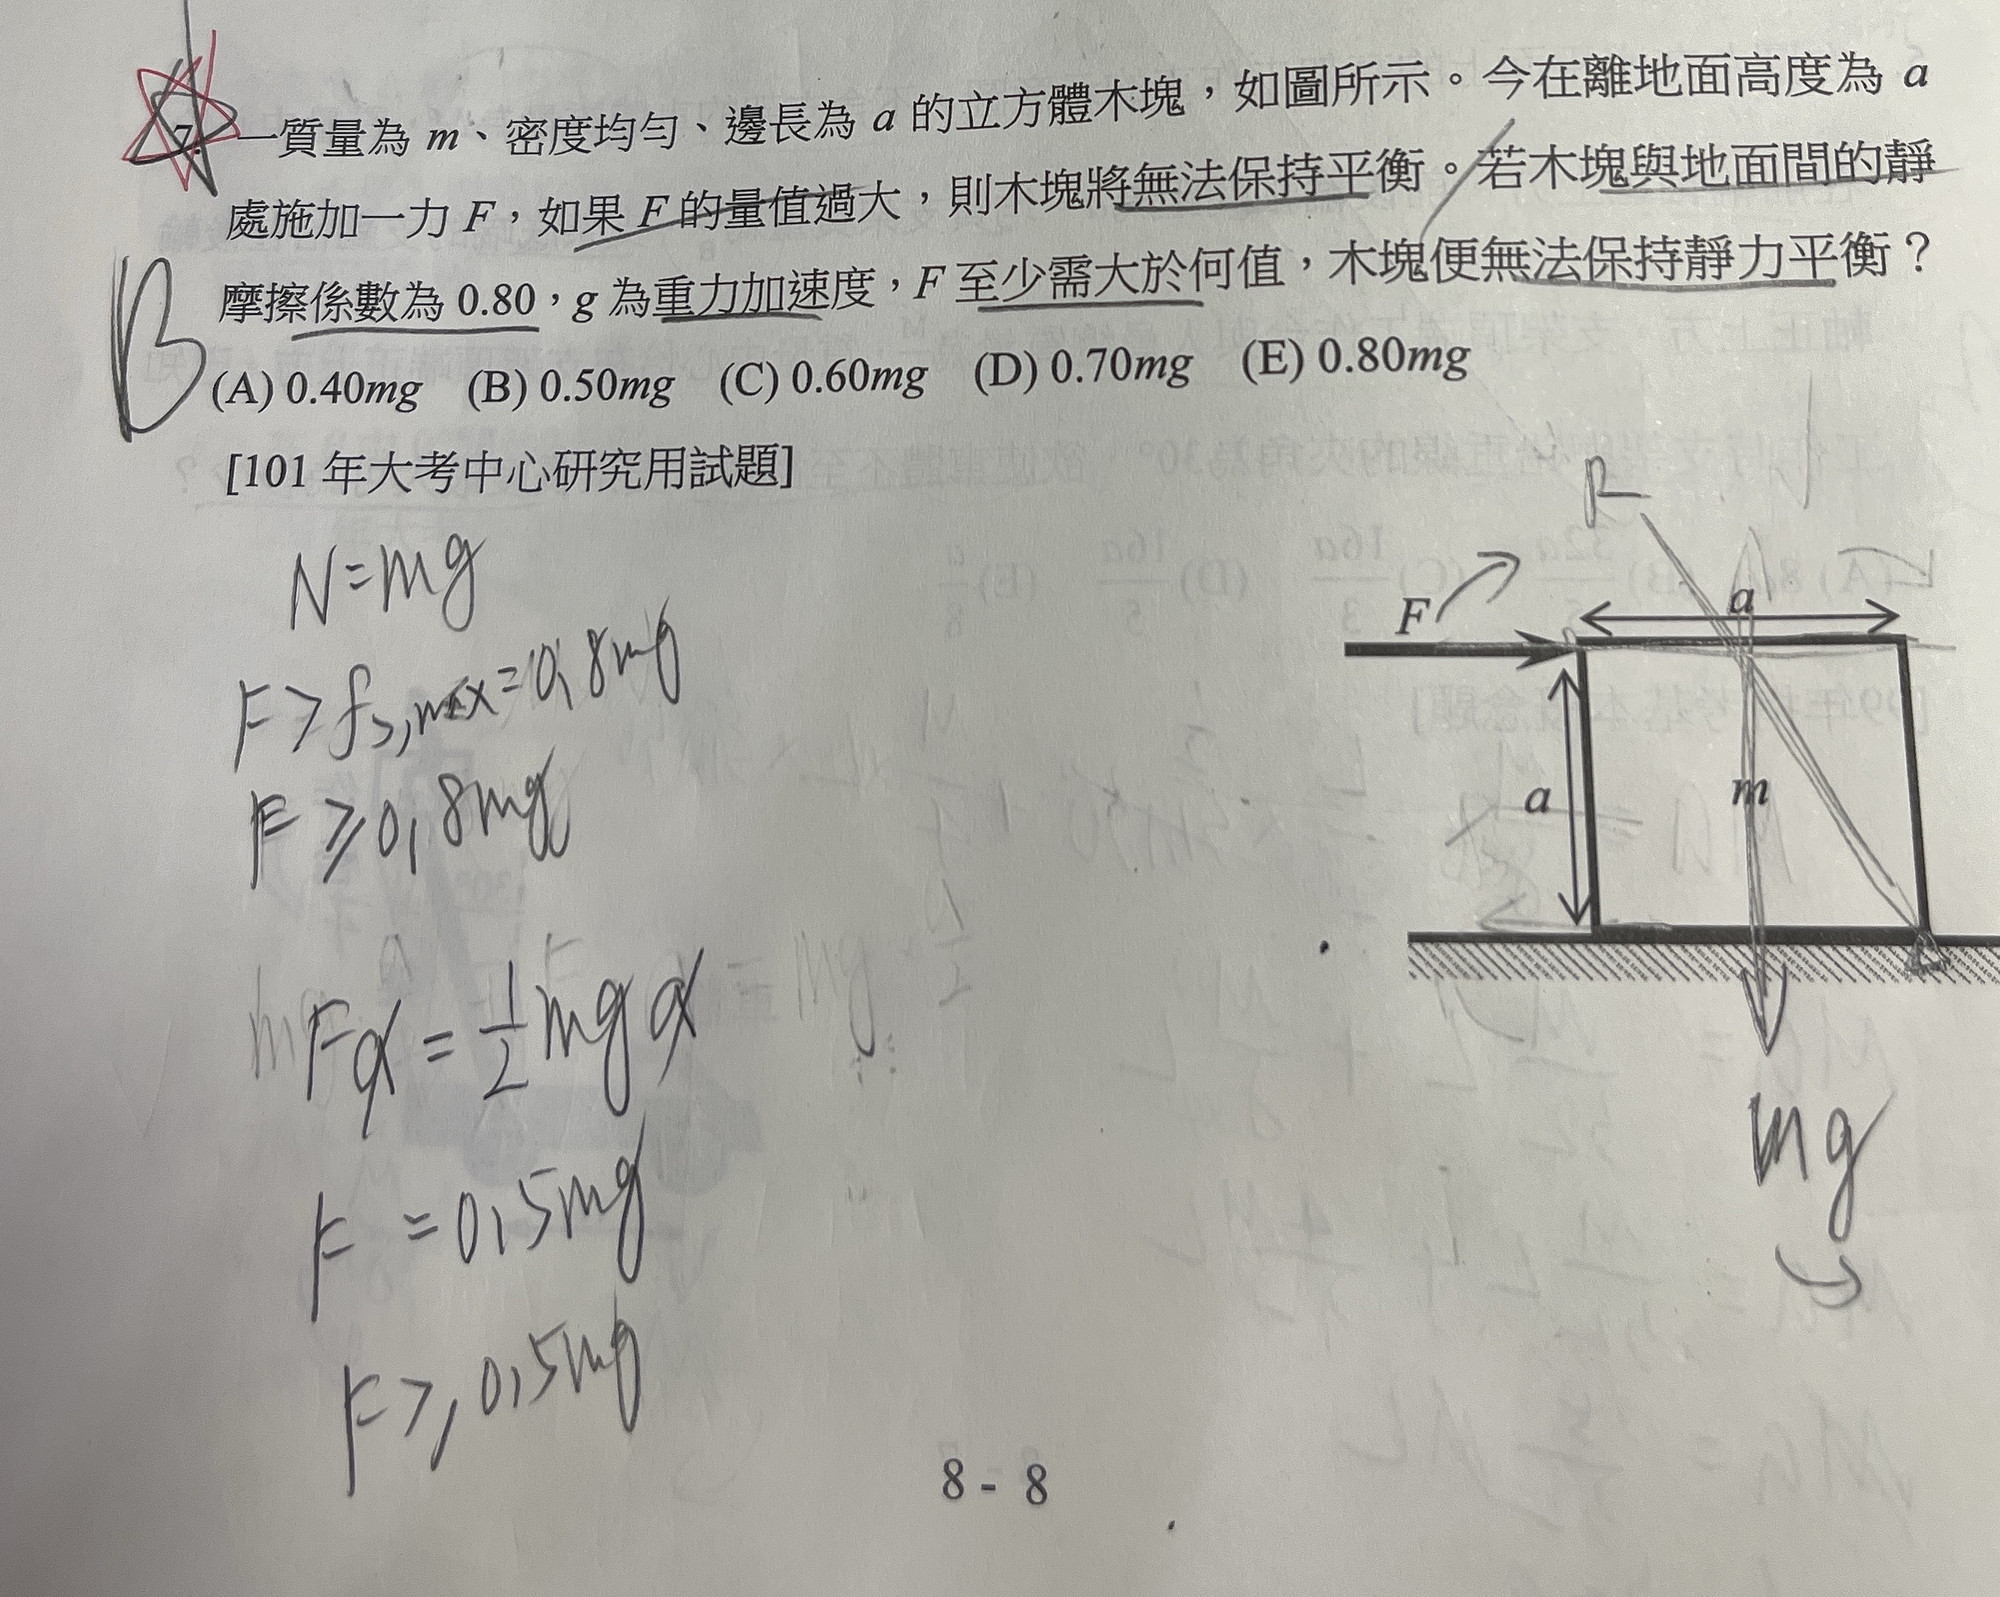 7. 一質量為 m、密度均勻、邊長為 a 的立方體木塊，如圖所示。今在離地面高度為 a
處施加一力 F，如果 F 的量值過大，則木塊將無法保持平衡。若木塊與地面間的靜
摩擦係數為 0.80，g 為重力加速度，F 至少需大於何值，木塊便無法保持靜力平衡？
B
(A) 0.40mg (B) 0.50mg (C) 0.60mg (D) 0.70mg (E) 0.80mg
[101 年大考中心研究用試題]
N=mg
F>fs,max=0.8mg
F≥0.8mg
Fa=1/2mga
F=0.5mg
F≥0.5mg
R
F
a
a
m
mg
8 - 8